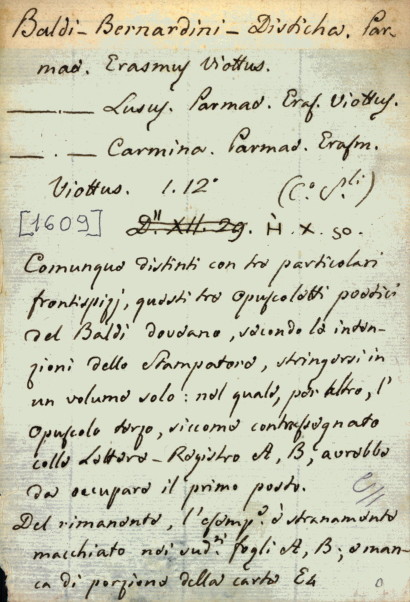 Baldi - Bernardini - Disticha. Par-
mae. Erasmus Viottus.
— . — Lusus. Parmae. Eras. Viottus.
— . — Carmina. Parmae. Erasm.
Viottus. 1. 12°
[1609] D." XII. 29. H. X. 50.
Comunque distinti con tre particolari
frontispizj, questi tre opuscoletti poetici
del Baldi doveano, secondo le inten-
zioni dello Stampatore, stringersi in
un volume solo: nel quale, per altro, l'
opuscolo terzo, siccome contrassegnato
colle Lettere - Registro A, B, avrebbe
da occupare il primo posto.
Del rimanente, l'esemp.e è stranamente
macchiato nei sud.ti fogli A, B; e man-
ca di porzione della carta E4